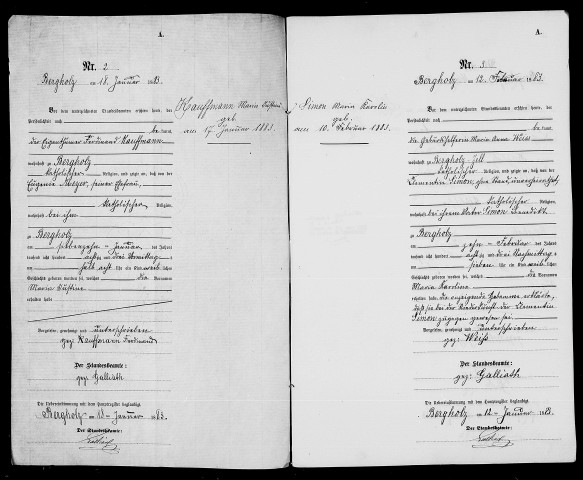 A.
Nr. 2
Bergholz am 18. Januar 1883.
Vor dem unterzeichneten Standesbeamten erschien heute, der
Persönlichkeit nach
kannt,
der Eigenthümer Ferdinand Kauffmann
wohnhaft zu Bergholz
katholischer Religion, und zeigte an, daß von der
Eugenie Meyer, seiner Ehefrau,
katholischer Religion,
wohnhaft bei ihm
zu Bergholz
am siebenzehn Januar des Jahres
tausend acht hundert achtzig und drei Vormittags
um halb acht Uhr ein Kind weiblichen
Geschlechts geboren worden sei, welches die Vornamen
Maria Justine
erhalten habe
Vorgelesen, genehmigt und unterschrieben
gez: Kauffmann Ferdinand
Der Standesbeamte:
gez: Galliath
Die Uebereinstimmung mit dem Hauptregister beglaubigt.
Bergholz am 18. Januar 1883.
Der Standesbeamte:
Galliath
Kauffmann Maria Justine
geb.
am 17 Januar 1883.
A.
Nr. 3
Bergholz am 12. Februar 1883.
Vor dem unterzeichneten Standesbeamten erschien heute, der
Persönlichkeit nach
kannt,
die Geburtshelferin Maria Anna Weiß
wohnhaft zu Bergholz-Zell
katholischer Religion, und zeigte an, daß von der
Clementine Simon, ohne Stand, unverheirathet,
katholischer Religion,
wohnhaft bei ihrem Vater Simon Benedikt
zu Bergholz
am zehn Februar des Jahres
tausend acht hundert achtzig und drei Nachmittags
um sieben Uhr ein Kind weiblichen
Geschlechts geboren worden sei, welches die Vornamen
Maria Karolina
erhalten habe, die anzeigende Hebamme erklärte,
daß sie bei der Niederkunft der Clementine
Simon zugegen gewesen sei.
Vorgelesen, genehmigt und unterschrieben
gez: Weiß
Der Standesbeamte:
gez: Galliath
Die Uebereinstimmung mit dem Hauptregister beglaubigt.
Bergholz am 12 Januar 188
Der Standesbeamte:
Galliath
Simon Maria Karolin
geb.
am 10. Februar 1883.